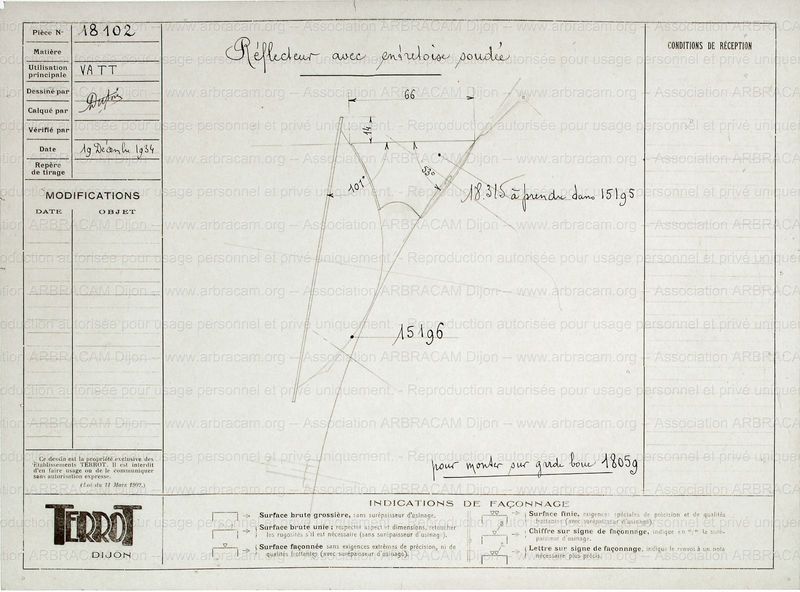 Pièce N° 18102
Matière
Utilisation principale VATT
Dessiné par
Calqué par
Vérifié par
Date 19 Décembre 1934
Repère de tirage
MODIFICATIONS
DATE OBJET
Réflecteur avec entretoise soudée
CONDITIONS DE RÉCEPTION
66
14
101°
53°
18.315 à prendre dans 15195
15196
pour monter sur garde boue 18059
Ce dessin est la propriété exclusive des
Établissements TERROT. Il est interdit
d'en faire usage ou de le communiquer
sans autorisation expresse.
(Loi du 11 Mars 1902.)
TERROT
DIJON
INDICATIONS DE FAÇONNAGE
Surface brute grossière, sans surépaisseur d'usinage.
Surface brute unie; respecter aspect et dimensions, retoucher
les rugosités s'il est nécessaire (sans surépaisseur d'usinage).
Surface façonnée sans exigences extrêmes de précision, ni de
qualités frottantes (avec surépaisseur d'usinage).
Surface finie, exigences spéciales de précision et de qualités
frottantes (avec surépaisseur d'usinage).
Chiffre sur signe de façonnage, indique en m/m la suré-
paisseur d'usinage.
Lettre sur signe de façonnage, indique le renvoi à un nota
nécessaire plus précis.
www.arbracam.org – Association ARBRACAM Dijon – www.arbracam.org – Association ARBRACAM Dijon
Reproduction autorisée pour usage personnel et privé uniquement.